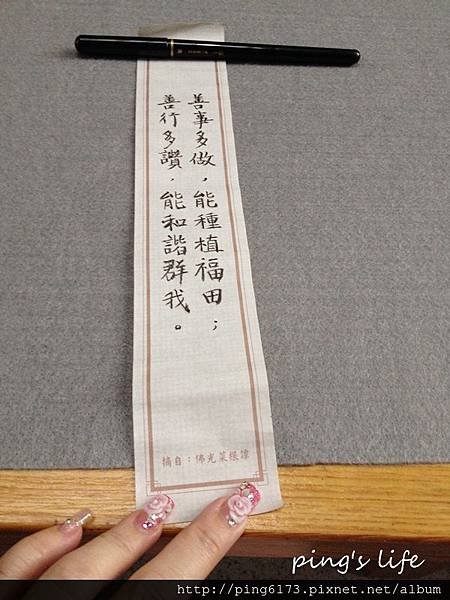 善事多做，能種植福田；
善行多讚，能和諧群我。
摘自：佛光菜根譚
ping's life
http://ping6173.pixnet.net/album